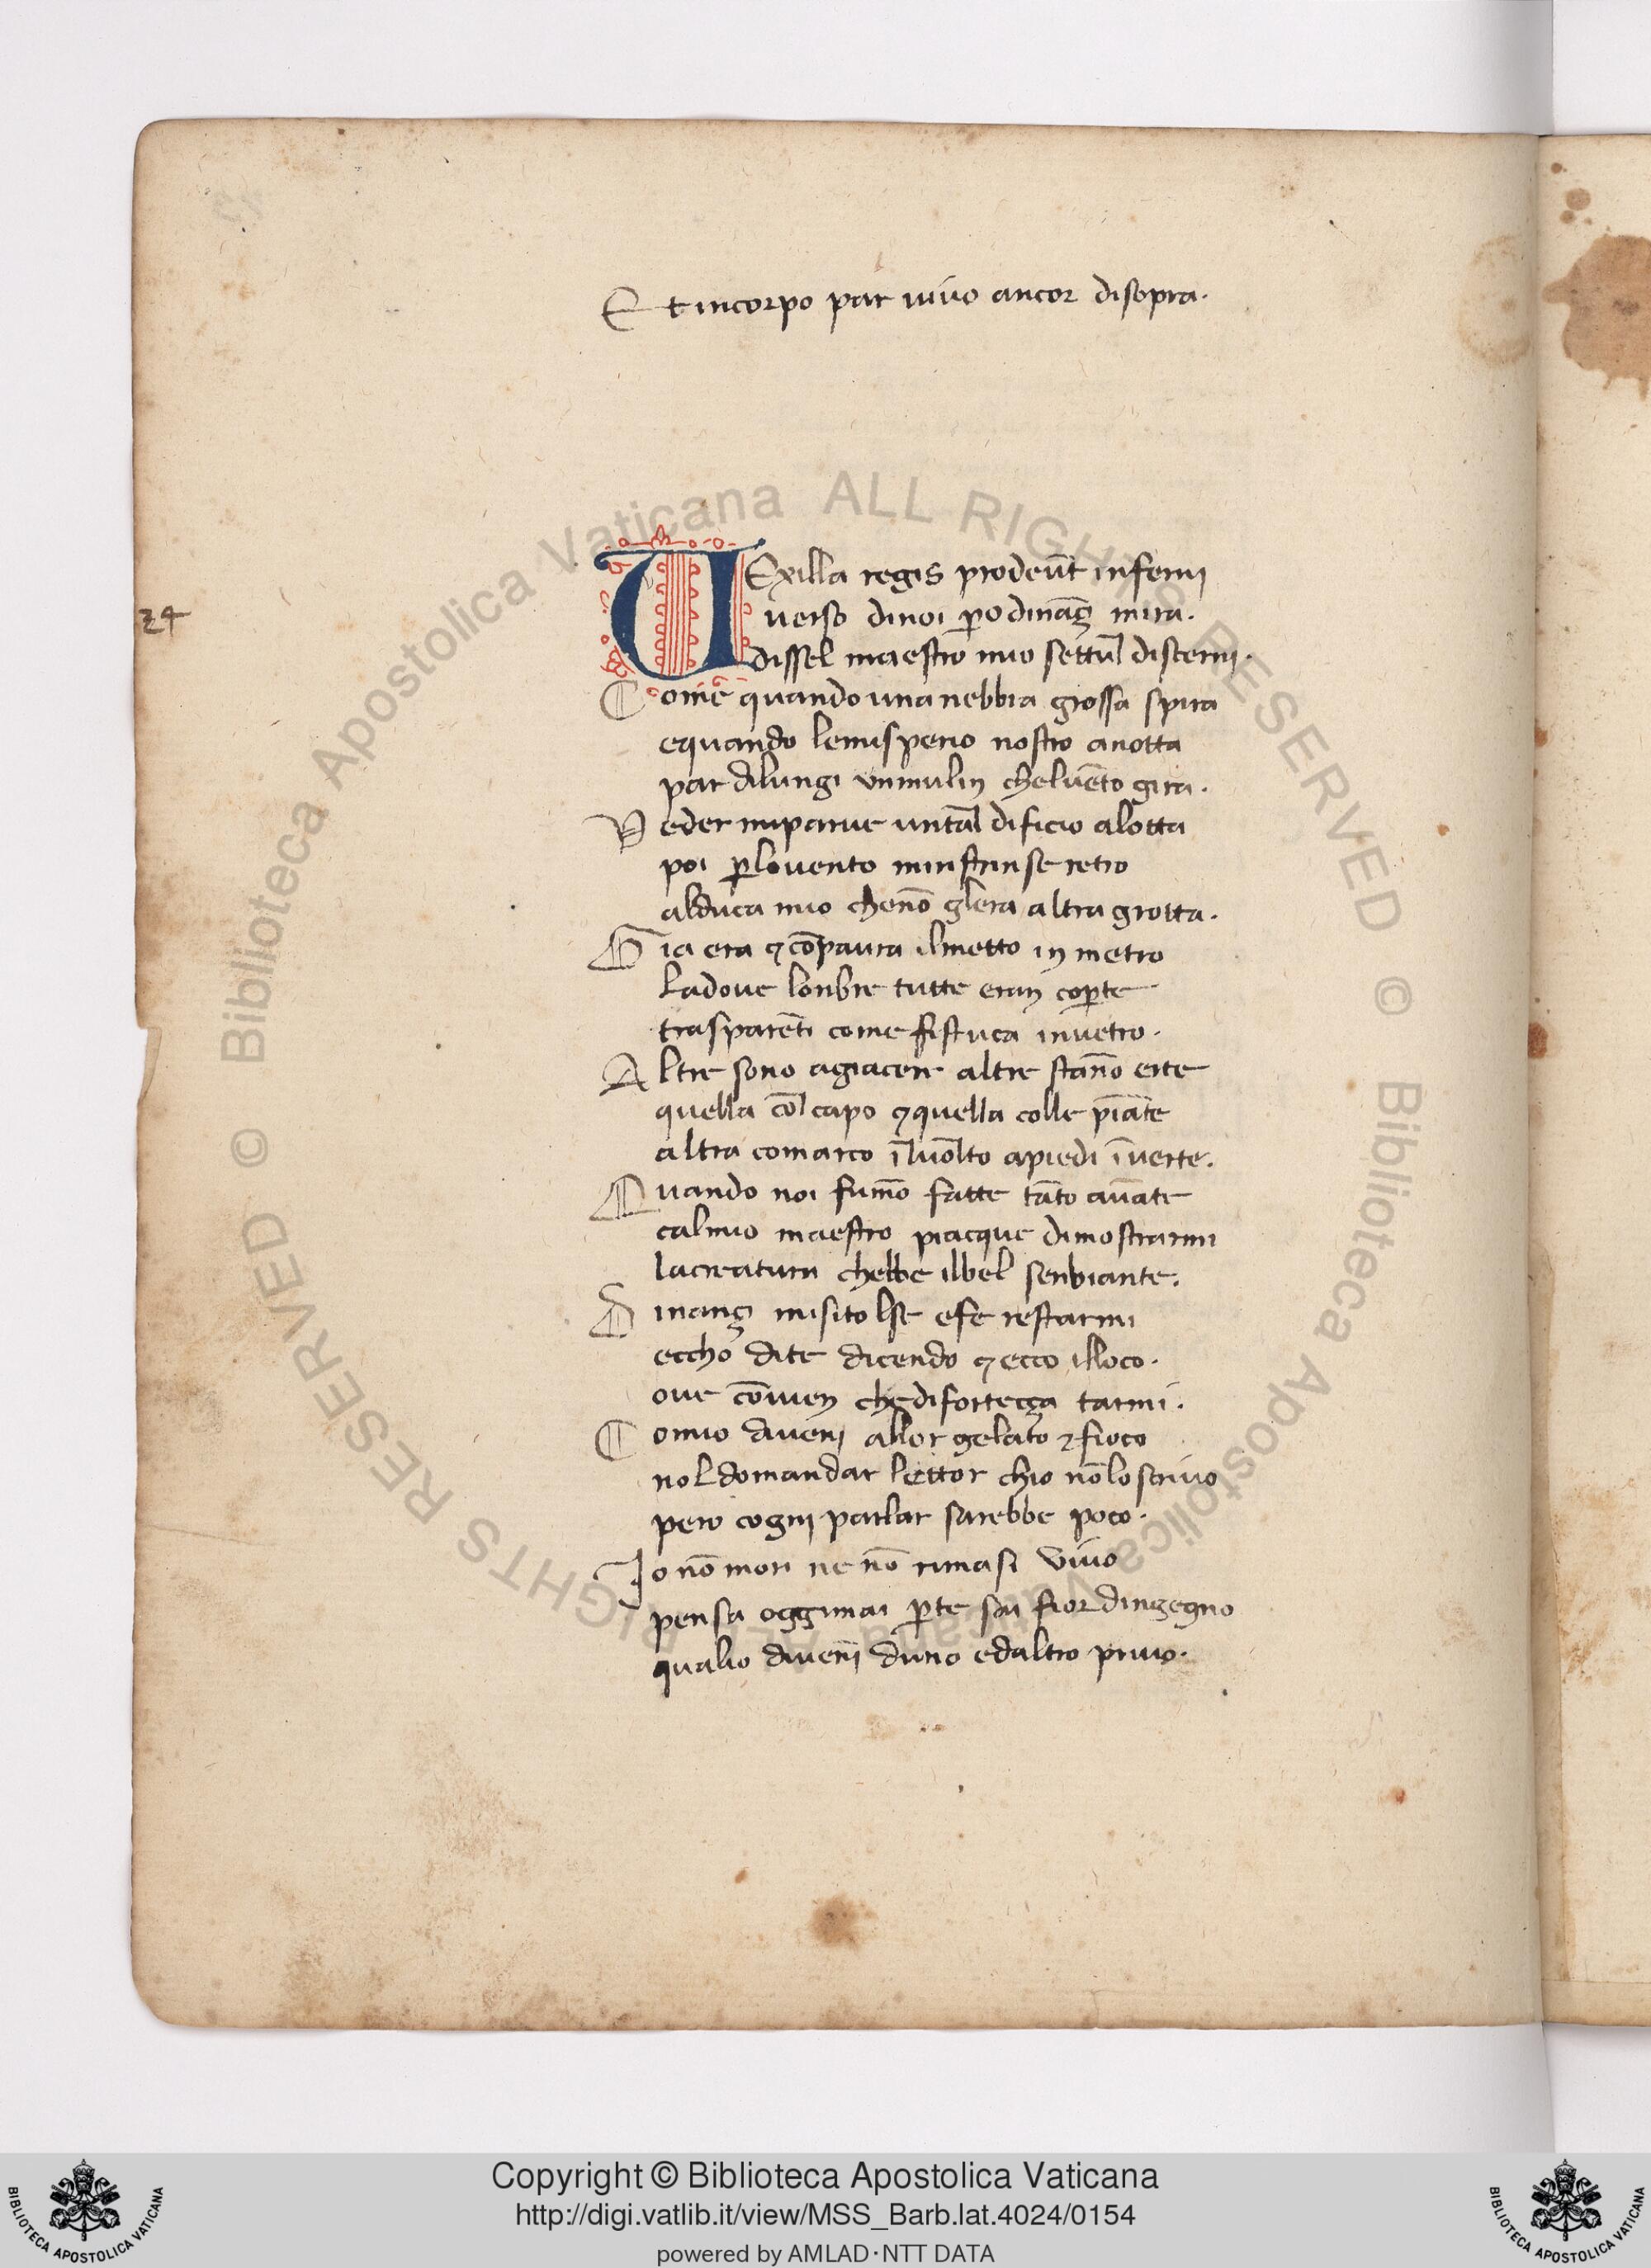 Et incorpo par vivo ancor disopra.
VExilla regis prodeūt infernj
34
verso dinoi ꝑo dināçj mira.
dissel maestro mio settul discernj.
Come quando una nebbia grossa spira
equando lemisperio nostro anotta
par dilungi vnmulin chelvēto gira.
Veder miparve untal dificio alotta
poi ꝑlovento miristrinse retro
alduca mio chenō glera altra grotta.
Gia era ⁊ cōpaura ilmetto in metro
Ladove lonbre tutte eran coꝑte
trasparēti come fistuca invetro.
Altre sono agiacere altre stāno erte
quella cōl capo ⁊ quella colle piāte
altra comarco īl volto apiedi īverte.
Quando noi fumō fatte tāto avāte
calmio maestro piacque dimostrarmi
lacreatura chebbe ilbel senbiante.
Dinançj misitolse efe restarmi
eccho dite dicendo ⁊ ecco illoco.
ove cōvien chedifortecça tarmi.
Comio divenj allor gelato ⁊ fioco
nol domandar lettor chio nōlo scrivo
pero cognj parlar sarebbe poco.
Io nō mori ne nō rimasi vivo
pensa oggimai ꝑte sai fior dingegno
qualio divenj duno edaltro privo.
© Biblioteca Apostolica Vaticana ALL RIGHTS RESERVED © Biblioteca Apostolica Vaticana ALL RIGHTS RESERVED
Copyright © Biblioteca Apostolica Vaticana
http://digi.vatlib.it/view/MSS_Barb.lat.4024/0154
powered by AMLAD·NTT DATA
BIBLIOTECA APOSTOLICA VATICANA
BIBLIOTECA APOSTOLICA VATICANA